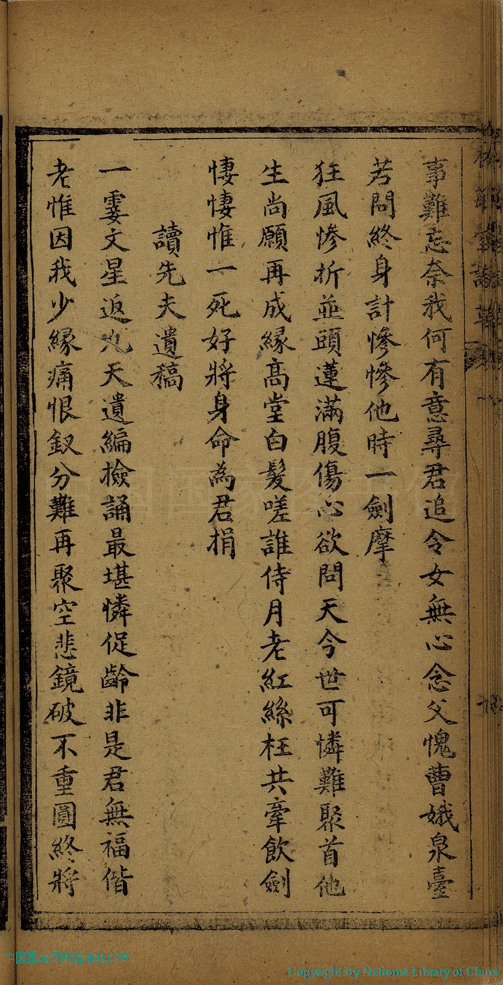 事難忘奈我何有意尋君追令女無心念父愧曹娥泉臺
若問終身計慘慘他時一劍摩
狂風慘折並頭蓮滿腹傷心欲問天今世可憐難聚首他
生尚願再成緣高堂白髮嗟誰侍月老紅絲枉共牽飲劍
悽悽惟一死好將身命為君捐
讀先夫遺稿
一霎文星返九天遺編檢誦最堪憐促齡非是君無福偕
老惟因我少緣痛恨釵分難再聚空悲鏡破不重圓終將
Copyright by National Library of China